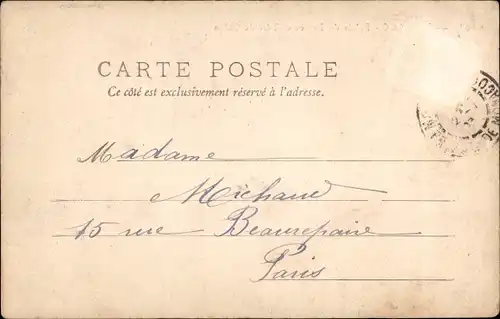 CARTE POSTALE
Ce côté est exclusivement réservé à l'adresse.
Madame
Michaud
15 rue Beaurepaire
Paris